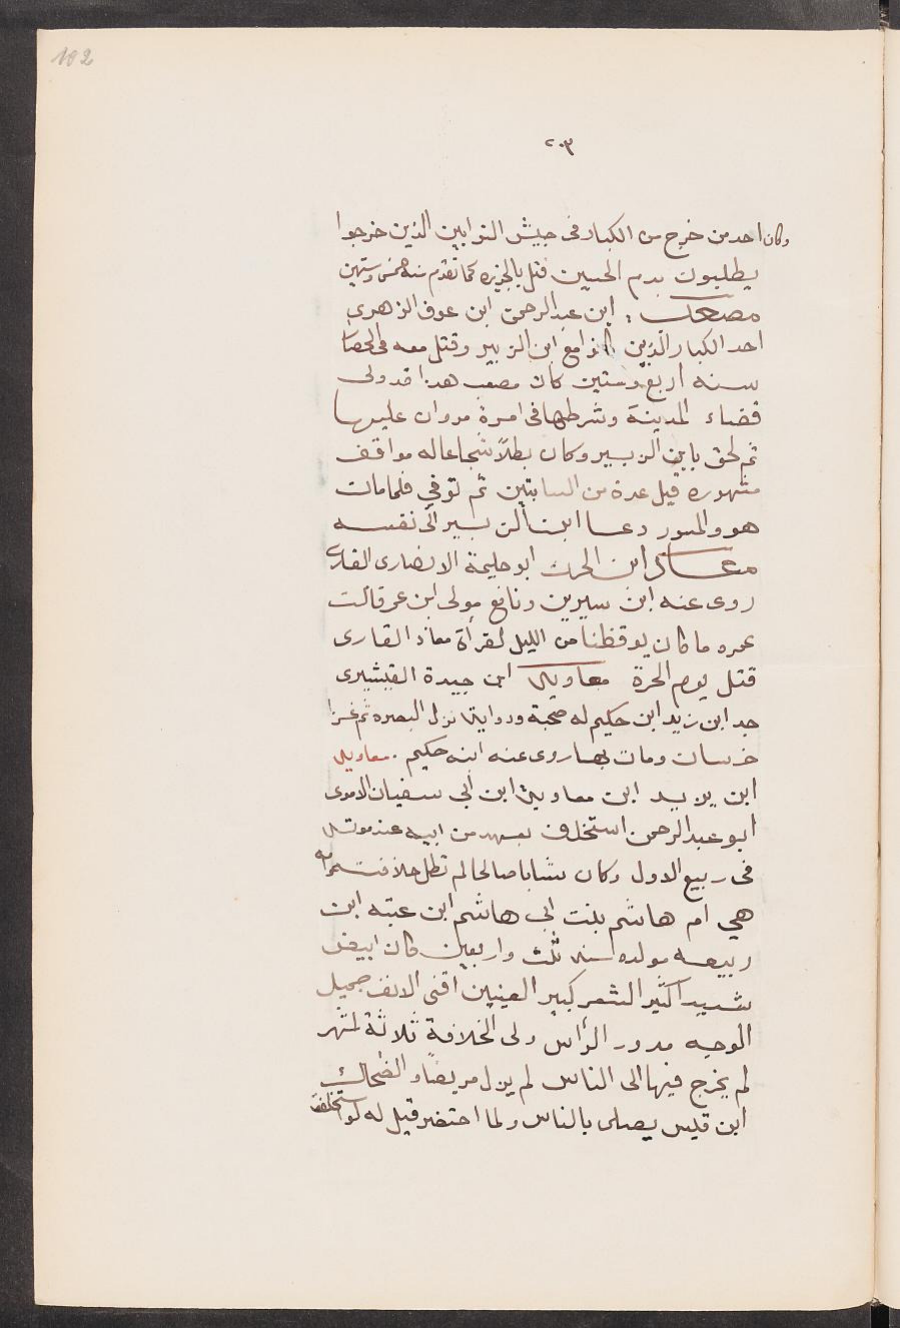 102
٢٠٣
وكان احد من خرج من الكبار فى جيش التوابين الذين خرجوا
يطلبون بدم الحسين قتل بالجزيره كما تقدم سنه خمس وستين
مصعب ابن عبد الرحمن ابن عوف الزهرى
احد الكبار الذين مع ابن الزبير وقتل معه فى الحصار
سنه اربع وستين كان مصعب هذا قد ولى
قضاء المدينة وشرطها فى امرة مروان عليها
ثم لحق بابن الزبير وكان بطلاً شجاعا له مواقف
مشهوره قيل عدة من الشاميين ثم توفي فلما مات
هو والمسور دعا ابن الزبير الى نفسه
معاذ ابن الحرث ابو حليمة الانصارى القارى
روى عنه ابن سيرين ونافع مولى ابن عمر قالت
عمره ما كان يوقظنا من الليل لقرأة معاذ القارى
قتل يوم الحرة معاويه ابن حيدة القشيرى
جد ابن زيد ابن حكيم له صحبة ورواية نزل البصره ثم غزا
خرسان ومات بها روى عنه ابنه حكيم . معاويه
ابن يزيد ابن معاوية ابن ابى سفيان الاموى
ابو عبد الرحمن استخلف بعهد من ابيه عند موته
فى ربيع الاول وكان شابا صالحا لم تطل خلافته وامه
هي ام هاشم بنت ابى هاشم ابن عتبه ابن
ربيعه مولده سنه ثلث واربعين كان ابيض
شديدا كثير الشعر كبير العينين اقنى الانف جميل
الوجه مدور الرأس ولى الخلافة ثلاثة اشهر
لم يخرج فيها الى الناس لم يزل مريضاً والضحاك
ابن قيس يصلى بالناس ولما احتضر قيل له لو استخلفت